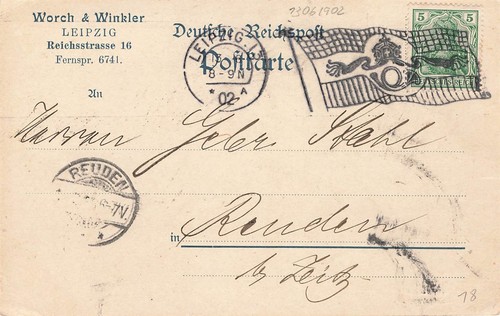 23061902
Worch & Winkler
LEIPZIG
Reichsstrasse 16
Fernspr. 6741.
Deutsche Reichspost
Postkarte
5 5
LEIPZIG
8-9N
* 02 A
An
Herren Gebr. Stahl
REUDEN
6-7N
*
in Reuden
b/ Zeitz
18